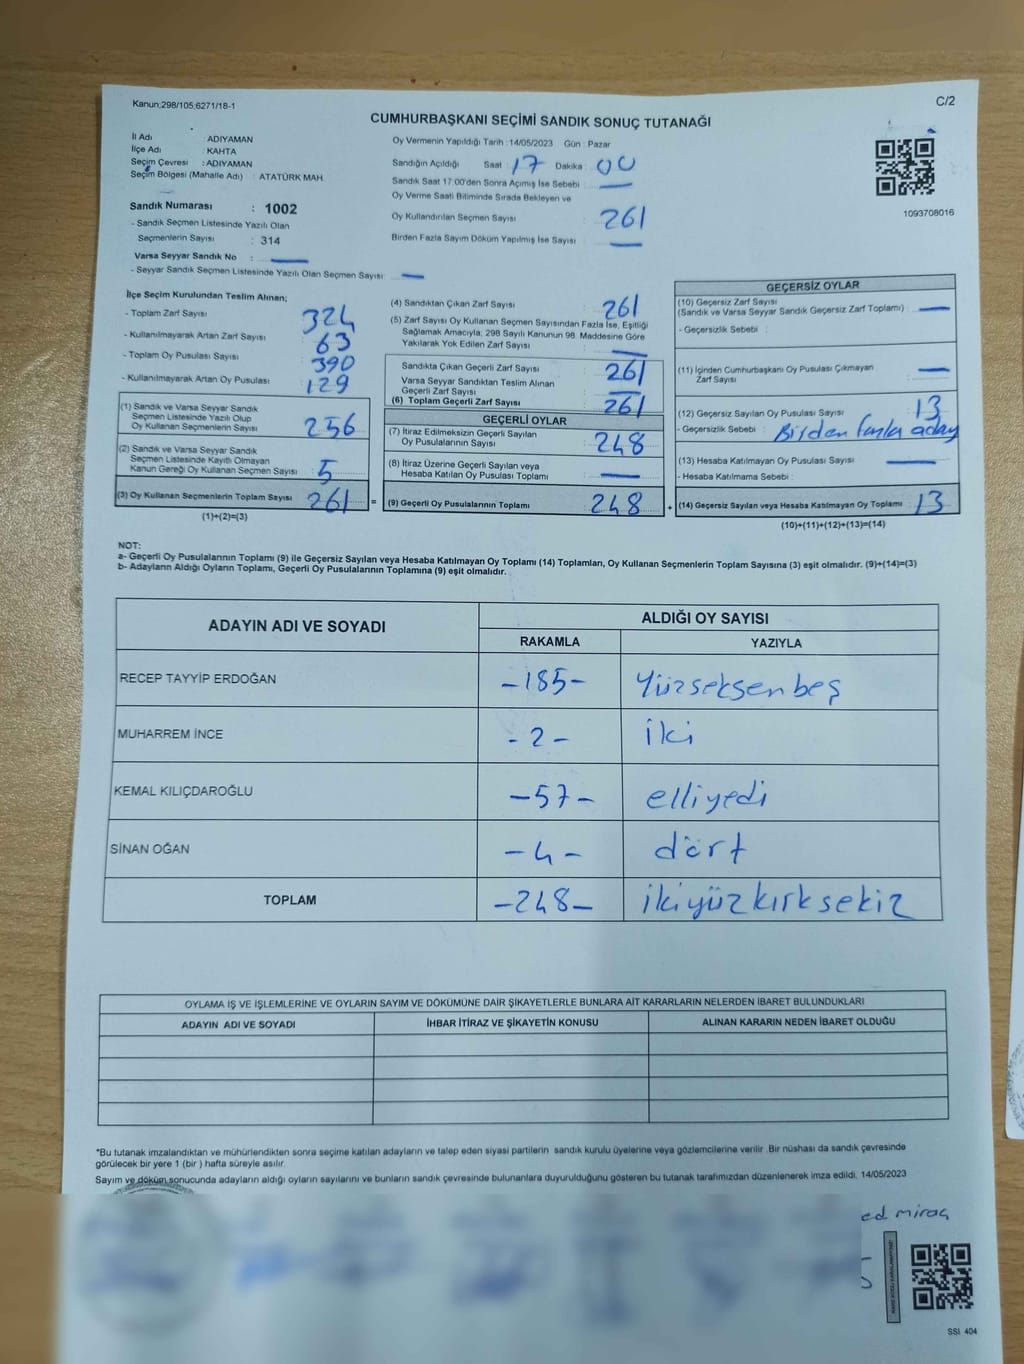 Kanun;298/105;6271/18-1
C/2
CUMHURBAŞKANI SEÇİMİ SANDIK SONUÇ TUTANAĞI
İl Adı : ADIYAMAN
İlçe Adı : KAHTA
Seçim Çevresi : ADIYAMAN
Seçim Bölgesi (Mahalle Adı) : ATATÜRK MAH.
Sandık Numarası : 1002
- Sandık Seçmen Listesinde Yazılı Olan
Seçmenlerin Sayısı : 314
Varsa Seyyar Sandık No : —
- Seyyar Sandık Seçmen Listesinde Yazılı Olan Seçmen Sayısı : —
Oy Vermenin Yapıldığı Tarih : 14/05/2023 Gün : Pazar
Sandığın Açıldığı Saat : 17 Dakika : 00
Sandık Saat 17:00'den Sonra Açımış İse Sebebi : —
Oy Verme Saati Bitiminde Sırada Bekleyen ve
Oy Kullandırılan Seçmen Sayısı : 261
Birden Fazla Sayım Döküm Yapılmış İse Sayısı : —
1093708016
İlçe Seçim Kurulundan Teslim Alınan;
- Toplam Zarf Sayısı : 324
- Kullanılmayarak Artan Zarf Sayısı : 63
- Toplam Oy Pusulası Sayısı : 390
- Kullanılmayarak Artan Oy Pusulası : 129
(1) Sandık ve Varsa Seyyar Sandık
Seçmen Listesinde Yazılı Olup
Oy Kullanan Seçmenlerin Sayısı : 256
(2) Sandık ve Varsa Seyyar Sandık
Seçmen Listesinde Kayıtlı Olmayan
Kanun Gereği Oy Kullanan Seçmen Sayısı : 5
(3) Oy Kullanan Seçmenlerin Toplam Sayısı : 261 =
(1)+(2)=(3)
(4) Sandıktan Çıkan Zarf Sayısı : 261
(5) Zarf Sayısı Oy Kullanan Seçmen Sayısından Fazla İse, Eşitliği
Sağlamak Amacıyla, 298 Sayılı Kanunun 98. Maddesine Göre
Yakılarak Yok Edilen Zarf Sayısı : —
Sandıkta Çıkan Geçerli Zarf Sayısı : 261
Varsa Seyyar Sandıktan Teslim Alınan
Geçerli Zarf Sayısı : —
(6) Toplam Geçerli Zarf Sayısı : 261
GEÇERLİ OYLAR
(7) İtiraz Edilmeksizin Geçerli Sayılan
Oy Pusulalarının Sayısı : 248
(8) İtiraz Üzerine Geçerli Sayılan veya
Hesaba Katılan Oy Pusulası Toplamı : —
(9) Geçerli Oy Pusulalarının Toplamı : 248 +
GEÇERSİZ OYLAR
(10) Geçersiz Zarf Sayısı
(Sandık ve Varsa Seyyar Sandık Geçersiz Zarf Toplamı) : —
- Geçersizlik Sebebi :
(11) İçinden Cumhurbaşkanı Oy Pusulası Çıkmayan
Zarf Sayısı : —
(12) Geçersiz Sayılan Oy Pusulası Sayısı : 13
- Geçersizlik Sebebi : Birden fazla aday
(13) Hesaba Katılmayan Oy Pusulası Sayısı : —
- Hesaba Katılmama Sebebi :
(14) Geçersiz Sayılan veya Hesaba Katılmayan Oy Toplamı : 13
(10)+(11)+(12)+(13)=(14)
NOT:
a- Geçerli Oy Pusulalarının Toplamı (9) ile Geçersiz Sayılan veya Hesaba Katılmayan Oy Toplamı (14) Toplamları, Oy Kullanan Seçmenlerin Toplam Sayısına (3) eşit olmalıdır. (9)+(14)=(3)
b- Adayların Aldığı Oyların Toplamı, Geçerli Oy Pusulalarının Toplamına (9) eşit olmalıdır.
ADAYIN ADI VE SOYADI
ALDIĞI OY SAYISI
RAKAMLA YAZIYLA
RECEP TAYYİP ERDOĞAN -185- Yüzseksenbeş
MUHARREM İNCE -2- iki
KEMAL KILIÇDAROĞLU -57- elliyedi
SİNAN OĞAN -4- dört
TOPLAM -248- ikiyüzkırksekiz
OYLAMA İŞ VE İŞLEMLERİNE VE OYLARIN SAYIM VE DÖKÜMÜNE DAİR ŞİKAYETLERLE BUNLARA AİT KARARLARIN NELERDEN İBARET BULUNDUKLARI
ADAYIN ADI VE SOYADI İHBAR İTİRAZ VE ŞİKAYETİN KONUSU ALINAN KARARIN NEDEN İBARET OLDUĞU
*Bu tutanak imzalandıktan ve mühürlendikten sonra seçime katılan adayların ve talep eden siyasi partilerin sandık kurulu üyelerine veya gözlemcilerine verilir. Bir nüshası da sandık çevresinde
görülecek bir yere 1 (bir ) hafta süreyle asılır.
Sayım ve döküm sonucunda adayların aldığı oyların sayılarını ve bunların sandık çevresinde bulunanlara duyurulduğunu gösteren bu tutanak tarafımızdan düzenlenerek imza edildi. 14/05/2023
ed miraç
SSI 404